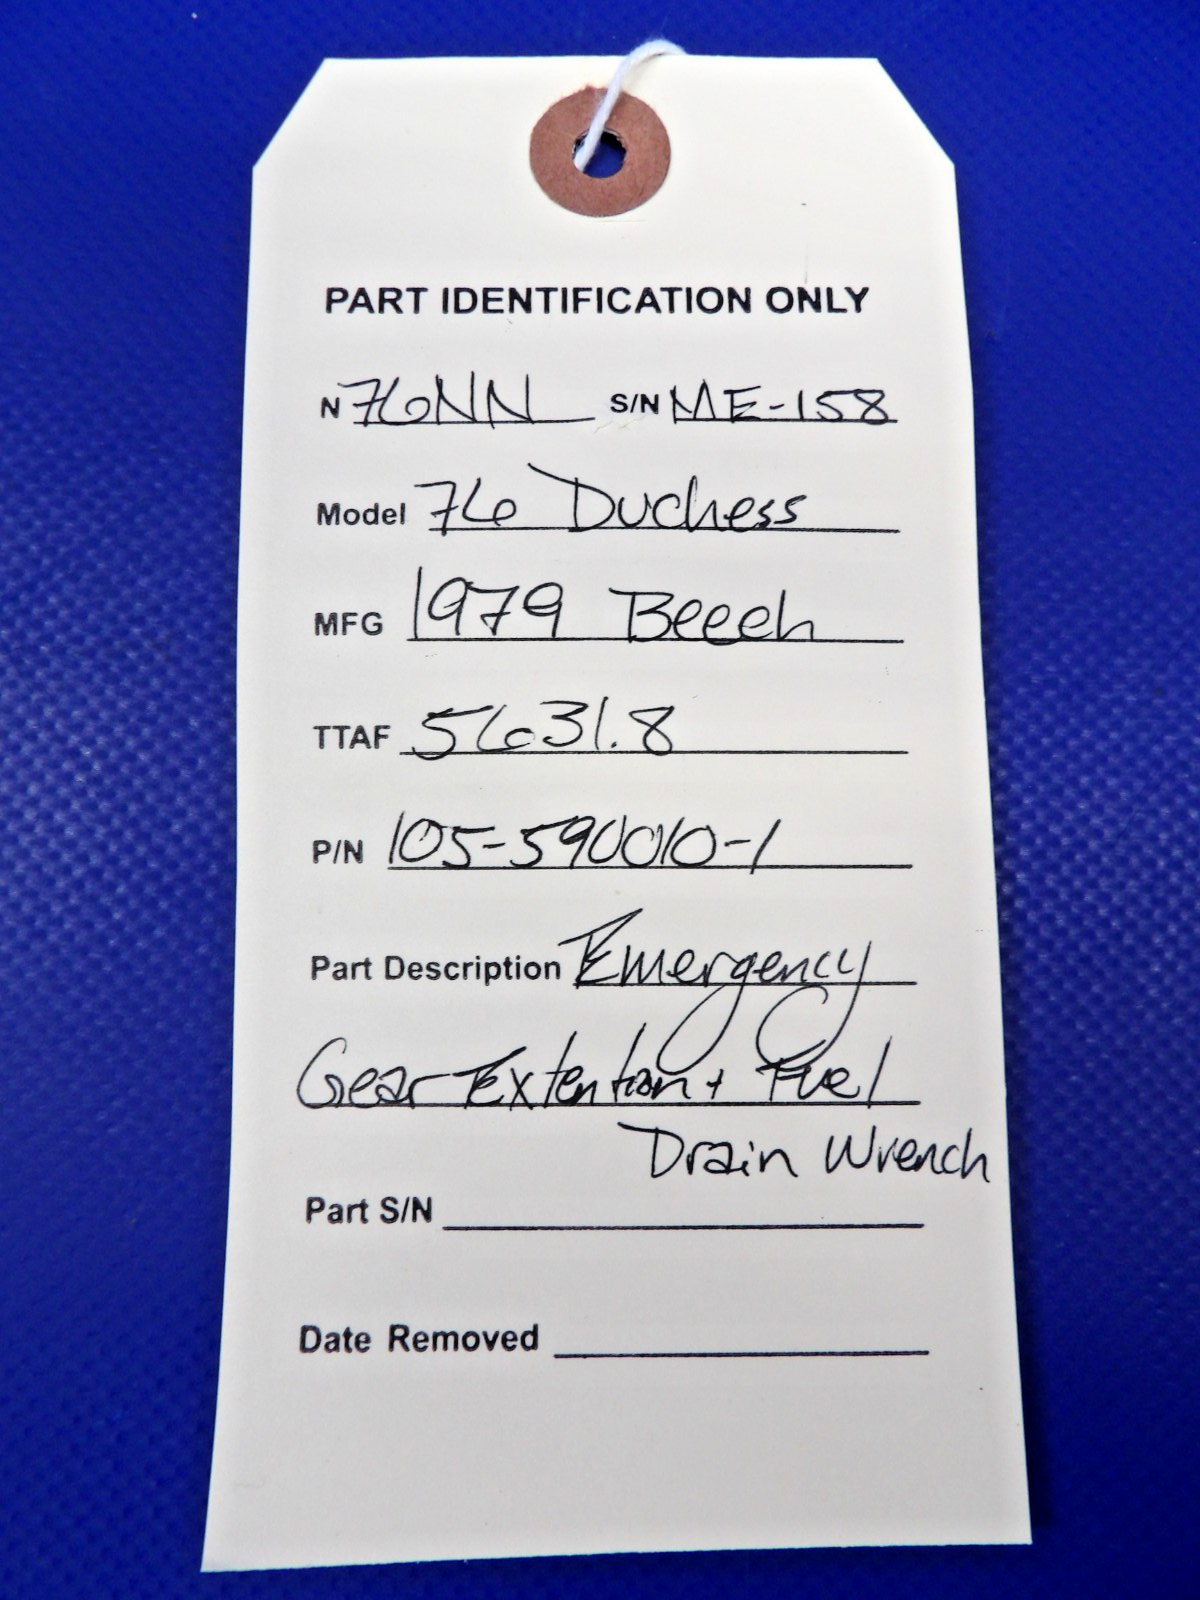 PART IDENTIFICATION ONLY
N 76NN S/N ME-158
Model 76 Duchess
MFG 1979 Beech
TTAF 5631.8
P/N 105-590010-1
Part Description Emergency
Gear Extention + Fuel
Drain Wrench
Part S/N
Date Removed